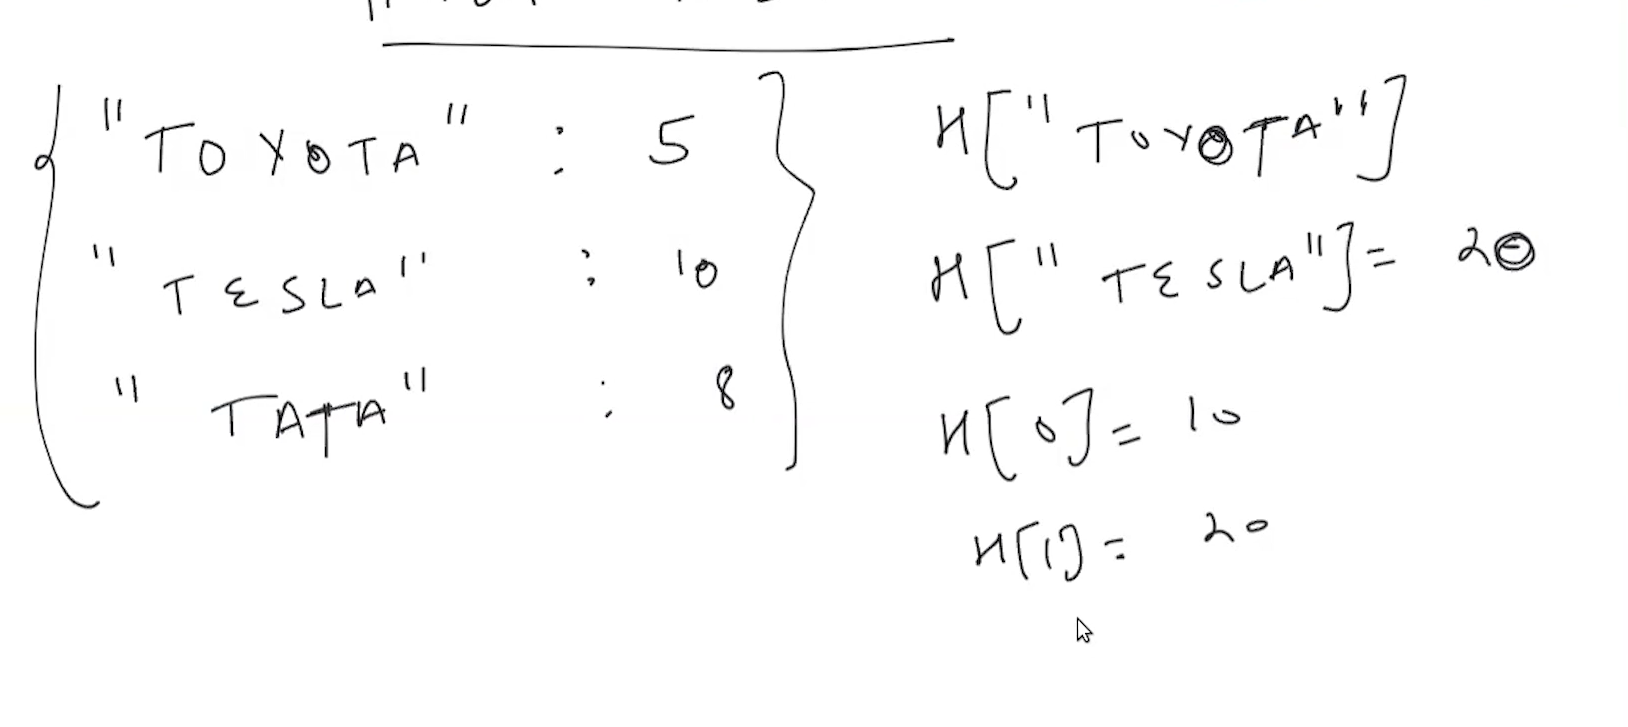 "TOYOTA" : 5
"TESLA" : 10
"TATA" : 8
H["TOYOTA"]
H["TESLA"] = 20
H[0] = 10
H[1] = 20